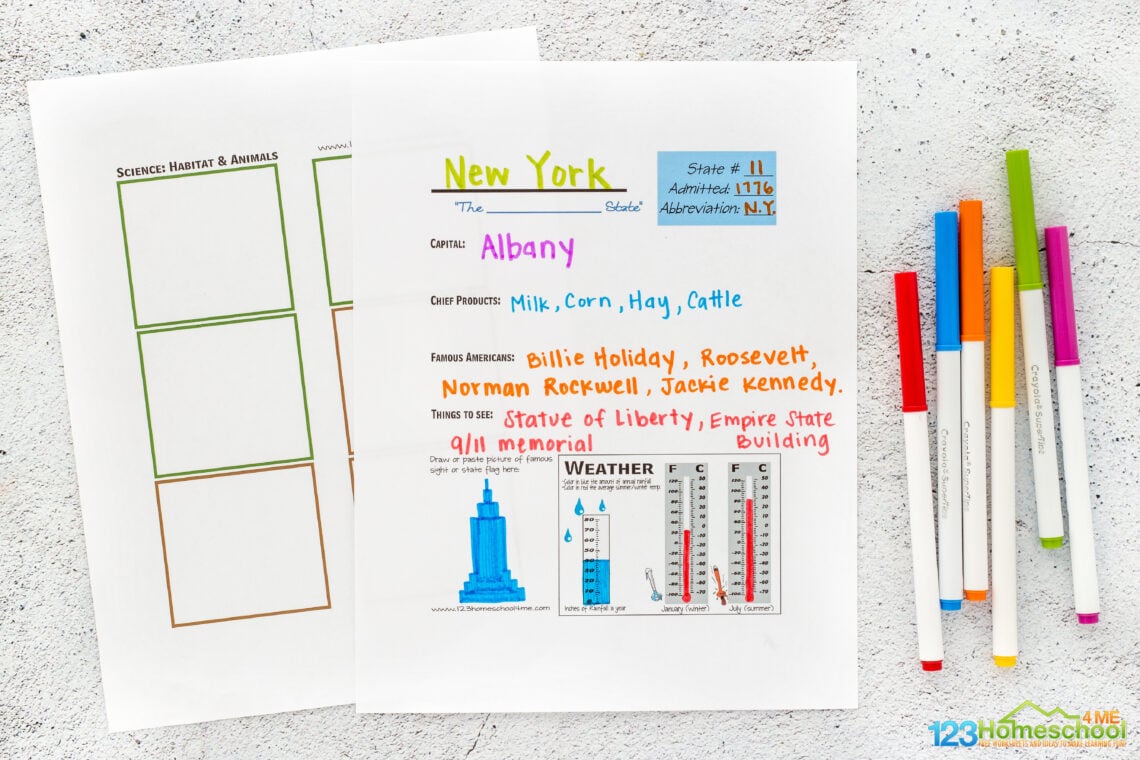 SCIENCE: HABITAT & ANIMALS
www.
New York
"The ____________ State"
State # 11
Admitted: 1776
Abbreviation: N.Y.
CAPITAL: Albany
CHIEF PRODUCTS: Milk, Corn, Hay, Cattle
FAMOUS AMERICANS: Billie Holiday, Roosevelt,
Norman Rockwell, Jackie Kennedy.
THINGS TO SEE: Statue of Liberty, Empire State
9/11 memorial Building
Draw or paste picture of famous
sight or state flag here:
www.123homeschool4me.com
WEATHER
•Color in blue the amount of annual rainfall
•Color in red the average summer/winter temp.
Inches of Rainfall a year
F C
January (winter)
F C
July (summer)
Crayola SuperTips
Crayola SuperTips
Crayola SuperTips
123 Homeschool 4 ME
FREE WORKSHEETS AND IDEAS TO MAKE LEARNING FUN!